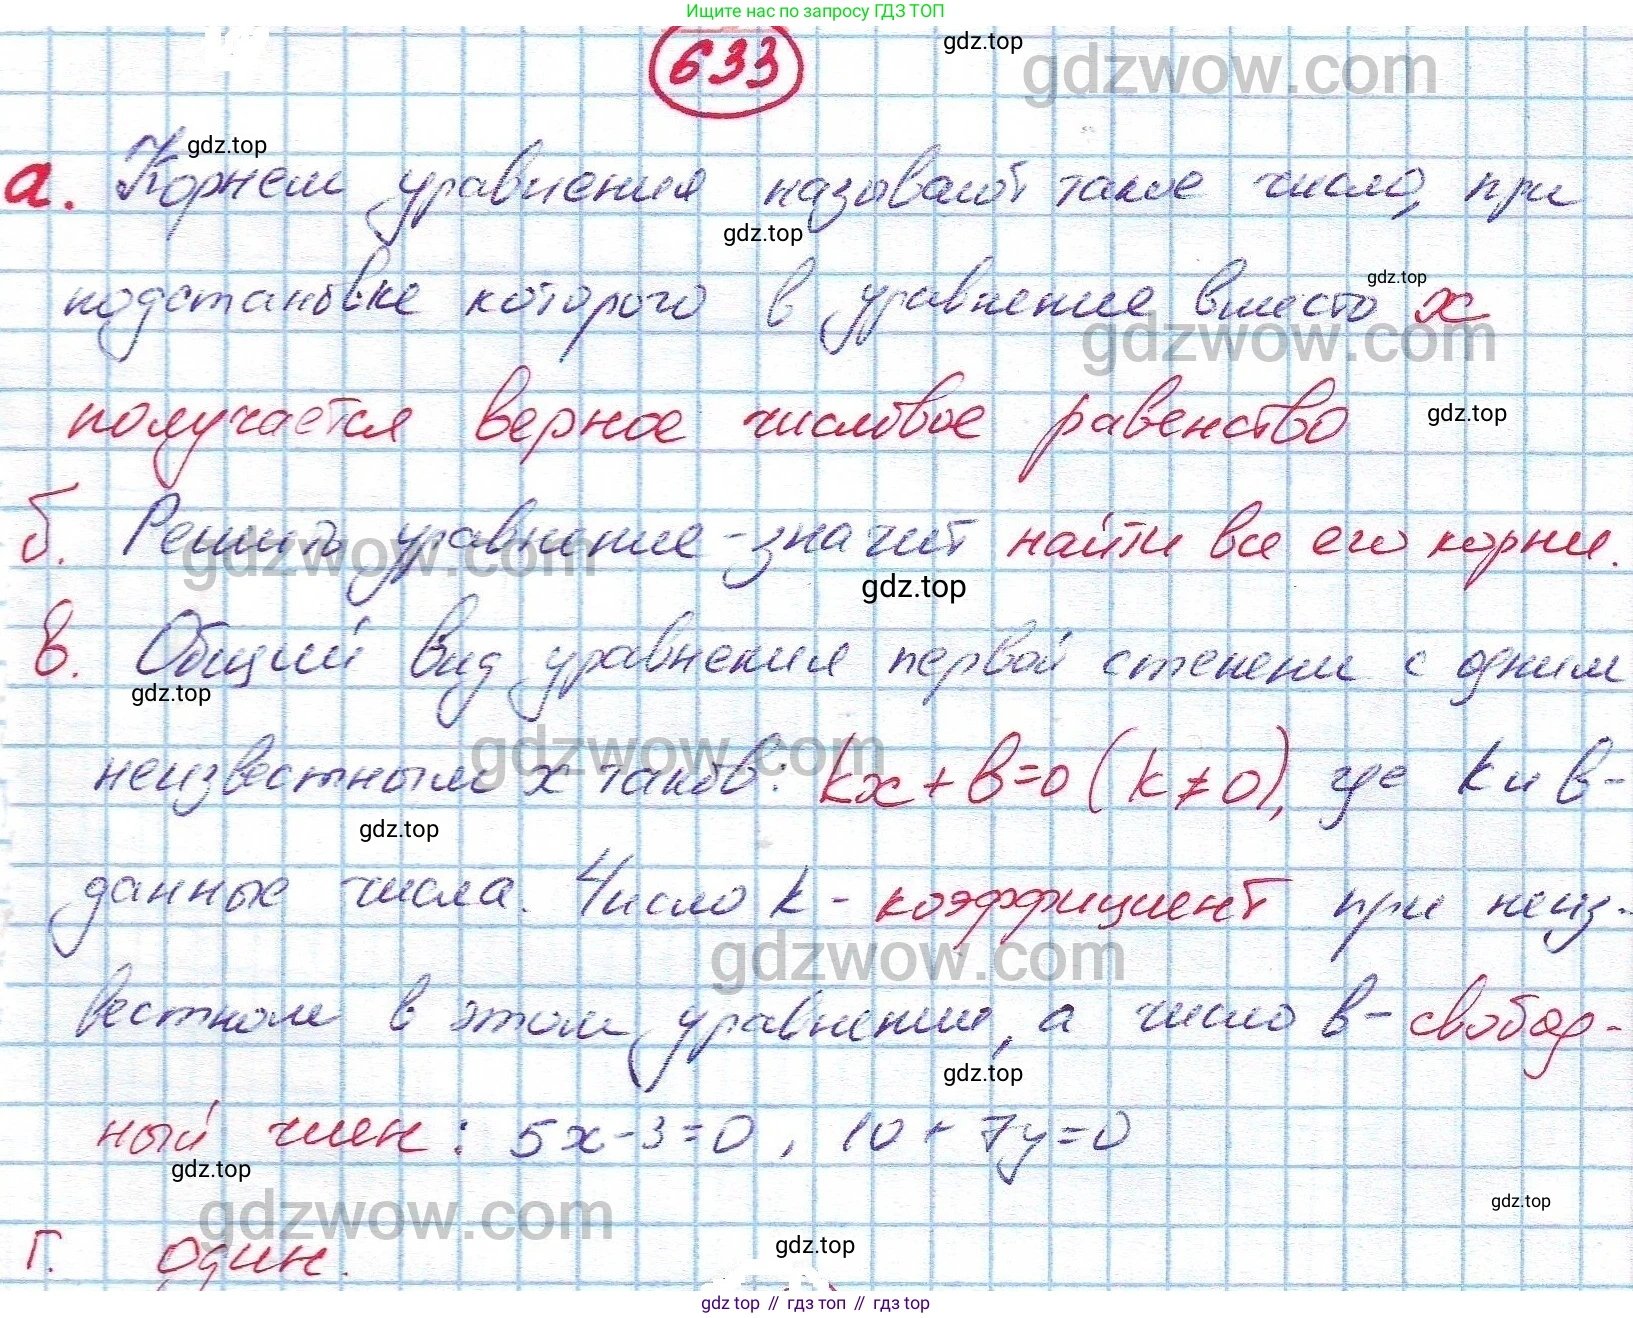 Ищите нас по запросу ГДЗ ТОП
633
gdz.top
gdzwow.com
gdz.top
а. Корнем уравнения называют такое число, при
gdz.top
gdz.top
подстановке которого в уравнение вместо x
gdzwow.com
получается верное числовое равенство
gdz.top
б. Решить уравнение - значит найти все его корни.
gdzwow.com
gdz.top
в. Общий вид уравнения первой степени с одним
gdz.top
gdzwow.com
неизвестным x таков: kx + b = 0 (k ≠ 0), где k и b -
gdz.top
данные числа. Число k - коэффициент при неиз-
gdzwow.com
вестном в этом уравнении, а число b - свобод-
gdz.top
ный член: 5x - 3 = 0, 10 + 7y = 0
gdz.top
gdzwow.com
gdz.top
г. один.
gdz.top
gdz top // гдз топ // гдз top